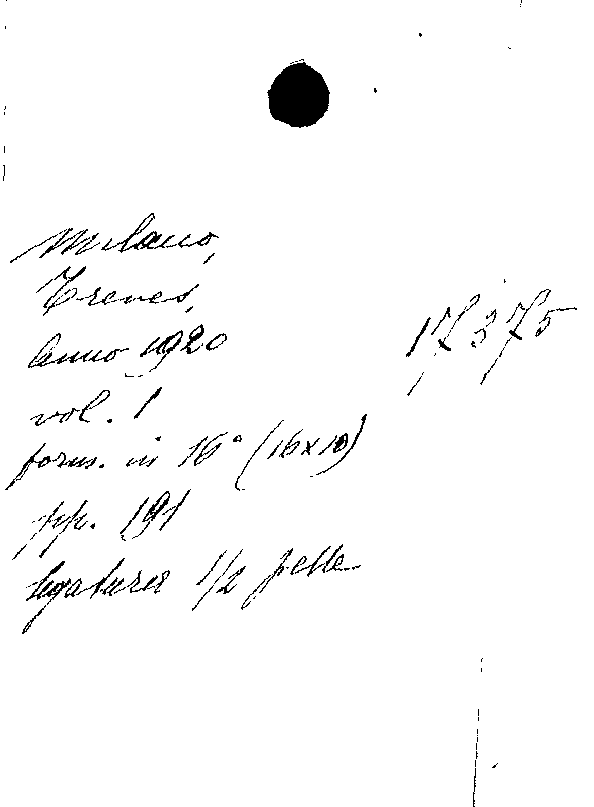 Milano,
Treves,
Anno 1920
17375
vol. 1
form. in 16° (16x10)
pp. 191
legatura 1/2 pelle